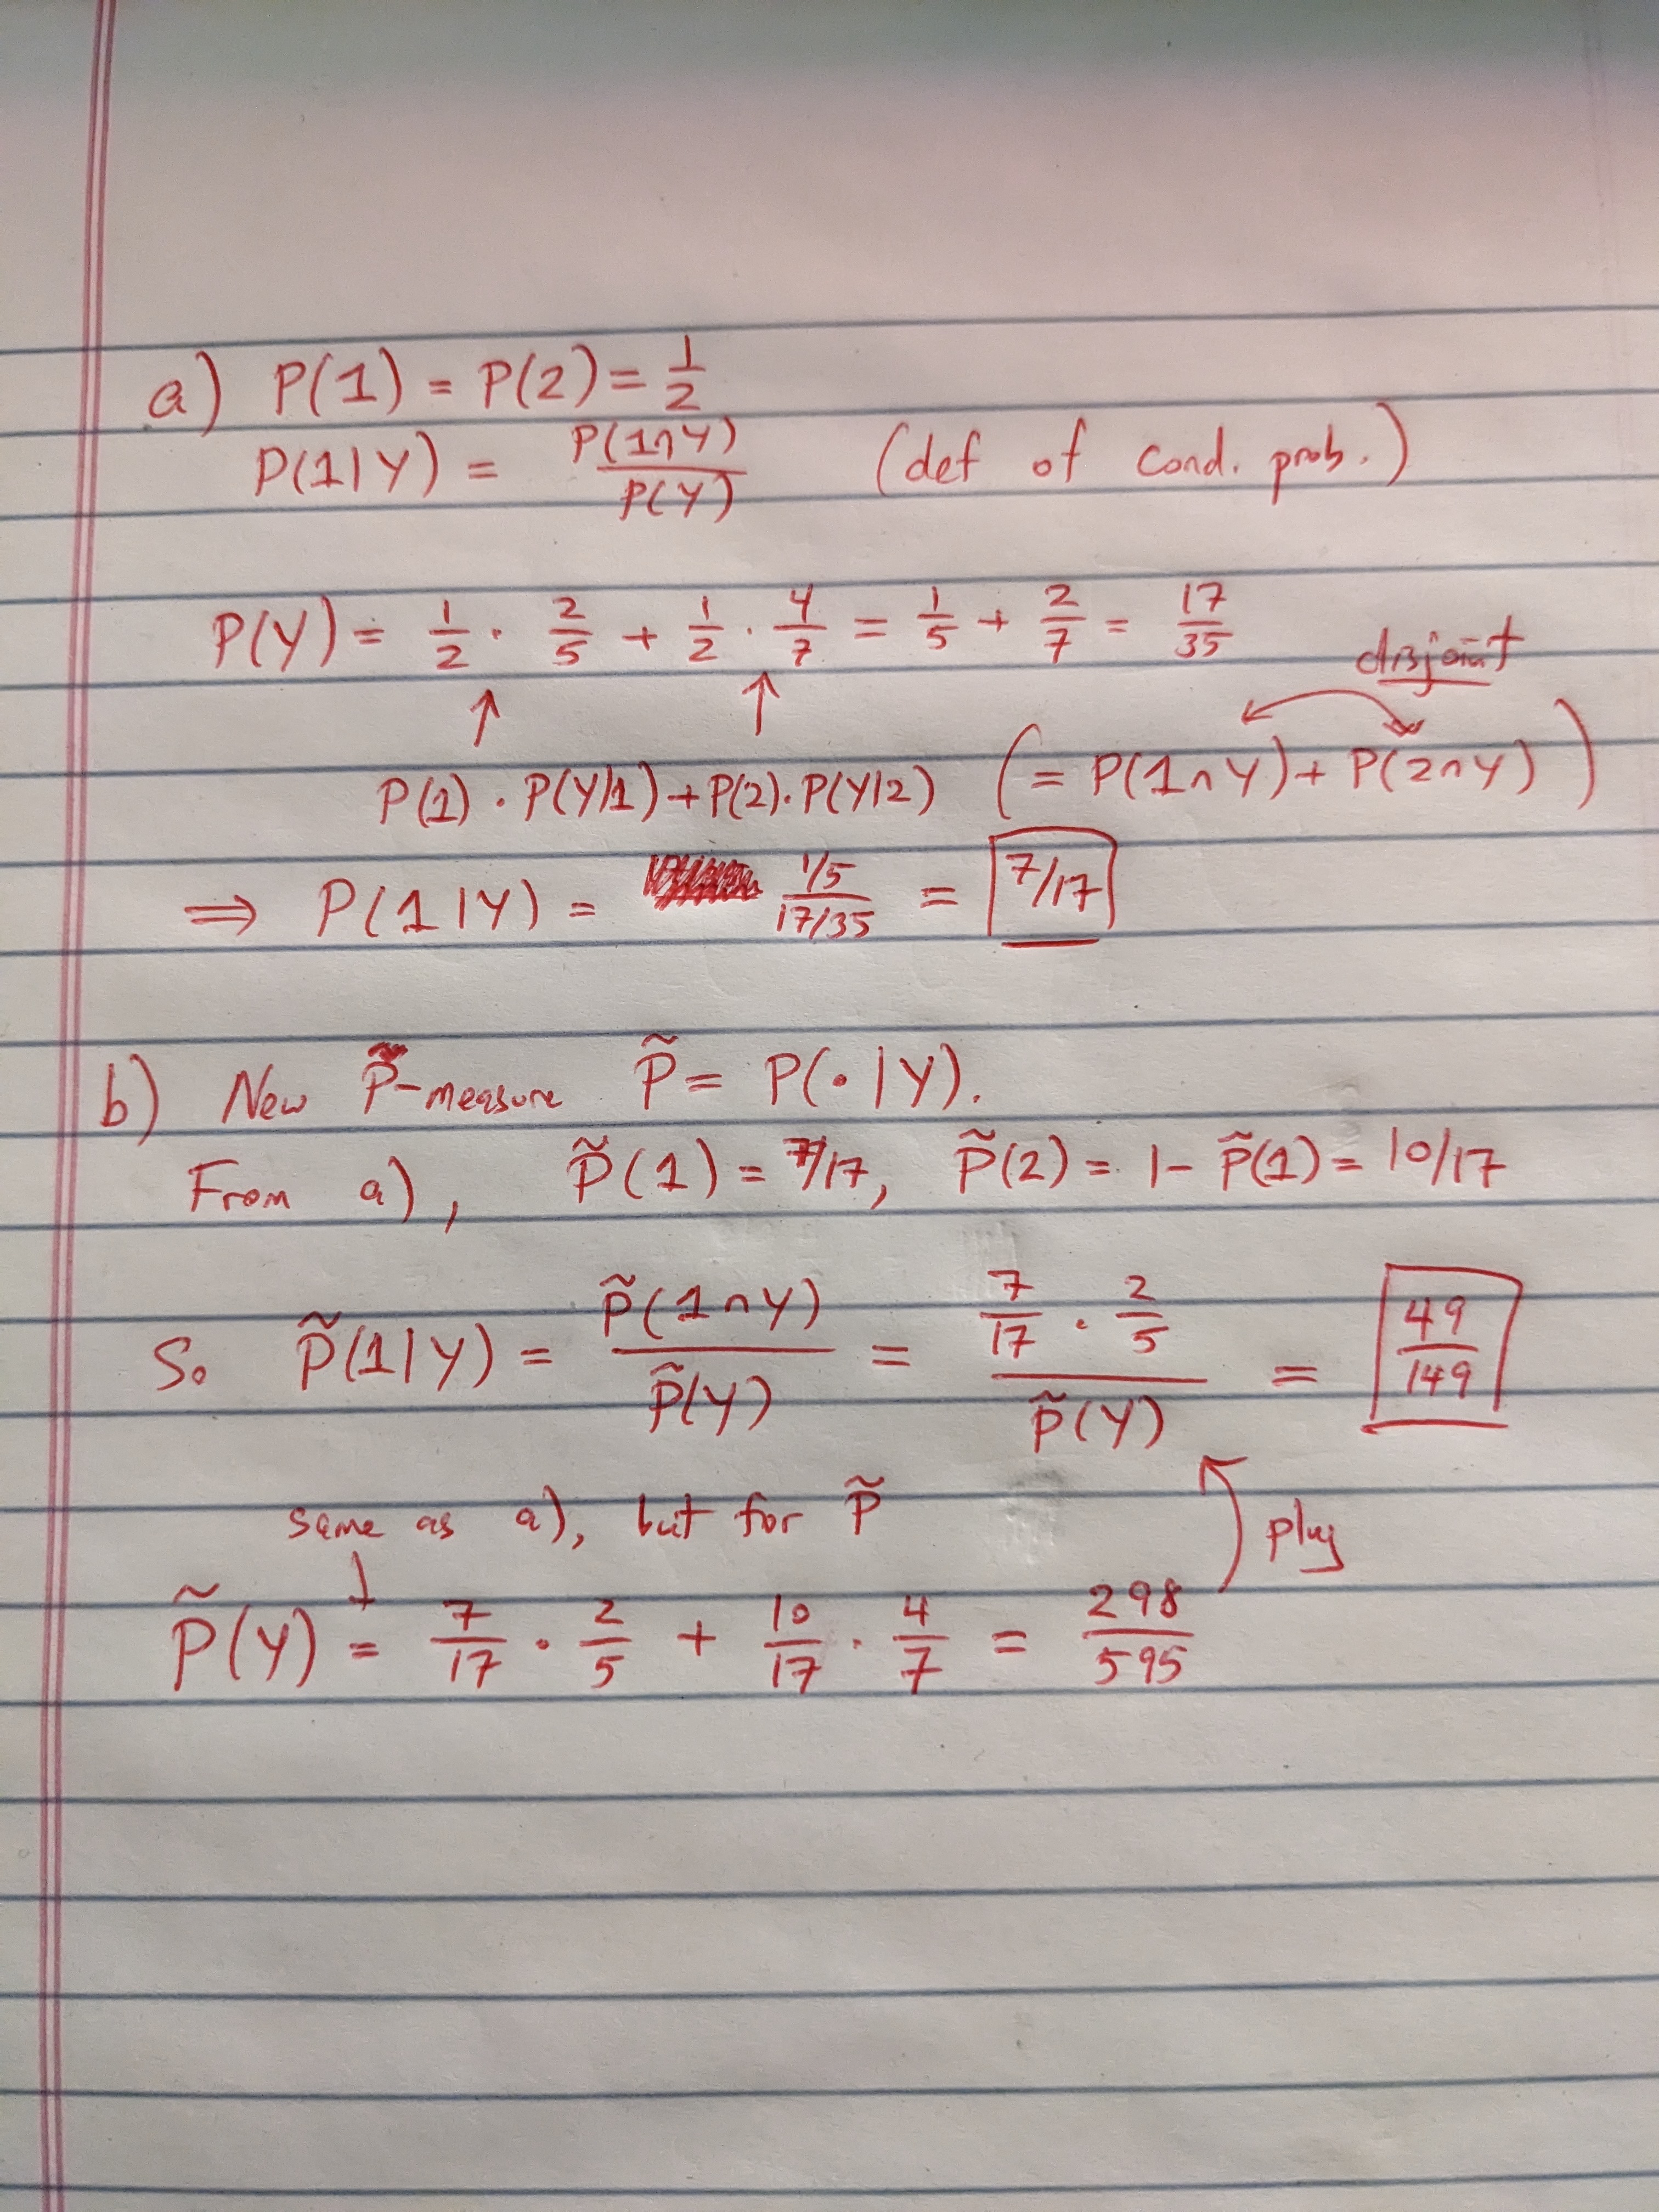 a) P(1) = P(2) = 1/2
P(1|Y) = P(1∩Y)/P(Y) (def of cond. prob.)
P(Y) = 1/2 · 2/5 + 1/2 · 4/7 = 1/5 + 2/7 = 17/35
disjoint
↑ ↑
P(1) · P(Y|1) + P(2) · P(Y|2) (= P(1∩Y) + P(2∩Y))
⇒ P(1|Y) = (1/5)/(17/35) = 7/17
b) New P̃-measure P̃ = P(·|Y).
From a), P̃(1) = 7/17, P̃(2) = 1 - P̃(1) = 10/17
So P̃(1|Y) = P̃(1∩Y)/P̃(Y) = (7/17 · 2/5)/P̃(Y) = 49/149
same as a), but for P̃
plug
P̃(Y) = 7/17 · 2/5 + 10/17 · 4/7 = 298/595